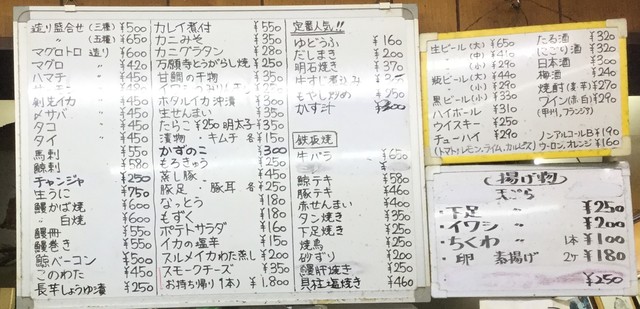 造り盛合せ(三種) ¥500
〃 (五種) ¥650
マグロトロ 造り ¥600
マグロ 〃 ¥420
ハマチ 〃 ¥450
剣先イカ 〃
〆サバ 〃 ¥400
タコ 〃 ¥450
タイ 〃 ¥450
馬刺 ¥550
鯨刺 ¥580
チャンジャ ¥250
生うに ¥750
鰻かば焼 ¥600
〃 白焼 ¥600
鰻冊 ¥350
鰻巻き ¥550
鯨ベーコン ¥500
このわた ¥450
長芋しょうゆ漬 ¥250
カレイ煮付 ¥550
カニみそ ¥350
カニグラタン ¥280
万願寺とうがらし焼 ¥250
甘鯛の干物 ¥350
ホタルイカ沖漬 ¥300
生せんまい ¥350
たらこ ¥250 明太子 ¥350
漬物・キムチ 各 ¥150
かずのこ ¥300
もろきゅう ¥250
蒸し豚 ¥250
豚足・豚耳 各 ¥250
なっとう ¥180
もずく ¥180
ポテトサラダ ¥160
イカの塩辛 ¥150
スルメイカわた蒸し ¥200
スモークチーズ ¥350
お持ち帰り1本) ¥1,800
定番人気!!
ゆどうふ ¥160
だしまき ¥200
明石焼き ¥370
もやし炒め
かす汁 ¥300
鉄板焼
牛バラ ¥650
鯨テキ ¥580
豚テキ ¥460
赤せんまい ¥350
タン焼き ¥350
下足焼き ¥250
焼鳥 ¥250
砂ずり ¥200
鰻肝焼き ¥250
貝柱塩焼き ¥460
生ビール(大) ¥650
〃 (中) ¥410
〃 (小) ¥290
瓶ビール(大) ¥440
〃 (小) ¥290
黒ビール(小) ¥330
ハイボール ¥310
ウイスキー ¥250
チューハイ ¥290
(トマト,レモン,ライム,カルピス)
たる酒 ¥320
にごり酒 ¥320
日本酒 ¥300
梅酒 ¥240
焼酎(麦芋) ¥270
ワイン(赤白) ¥290
(甲州,フランジア)
ノンアルコールB ¥190
ウーロン,オレンジ ¥160
(揚げ物)
天ぷら
・下足 〃 ¥250
・イワシ 〃 ¥200
・ちくわ 〃 1本 ¥100
・卵 素揚げ 2ヶ ¥180
¥250